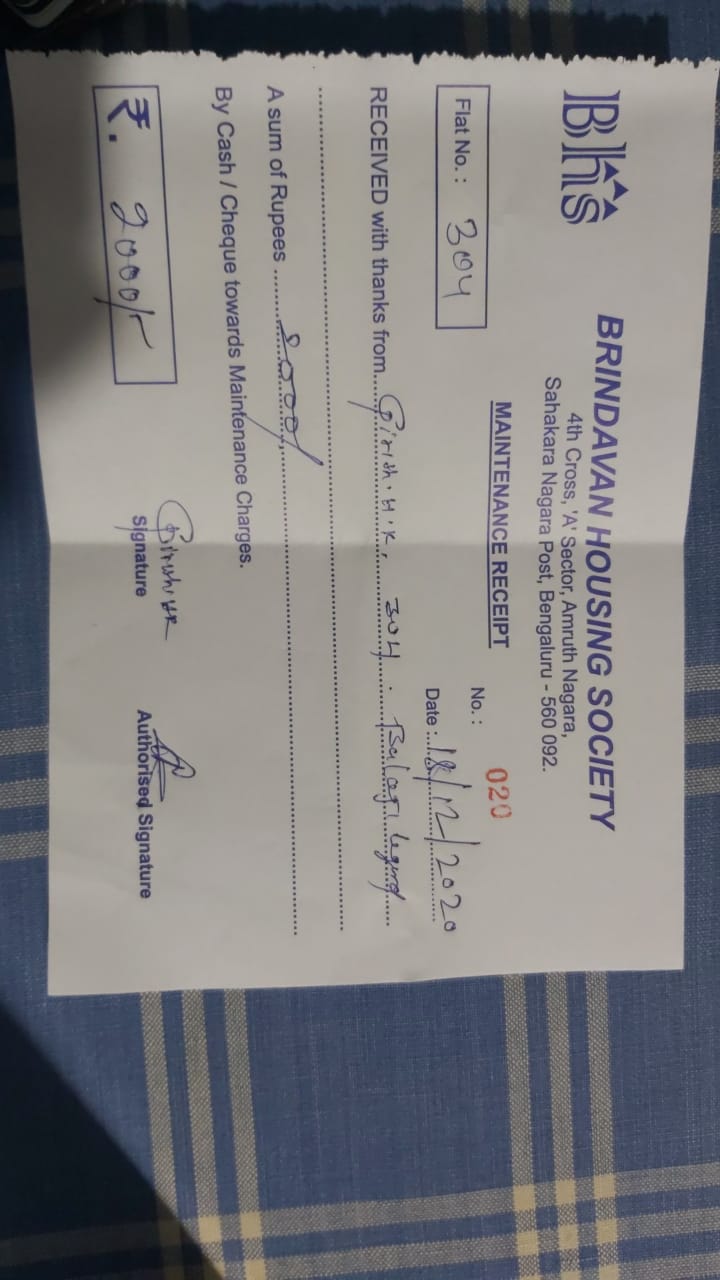 Bhs
BRINDAVAN HOUSING SOCIETY
4th Cross, 'A' Sector, Amruth Nagara,
Sahakara Nagara Post, Bengaluru - 560 092.
MAINTENANCE RECEIPT
Flat No. : 304
No. : 020
Date : 18/12/2020
RECEIVED with thanks from Girish.H.K, 304. Balaji
A sum of Rupees 2000/
By Cash / Cheque towards Maintenance Charges.
₹. 2000/-
Signature
Authorised Signature